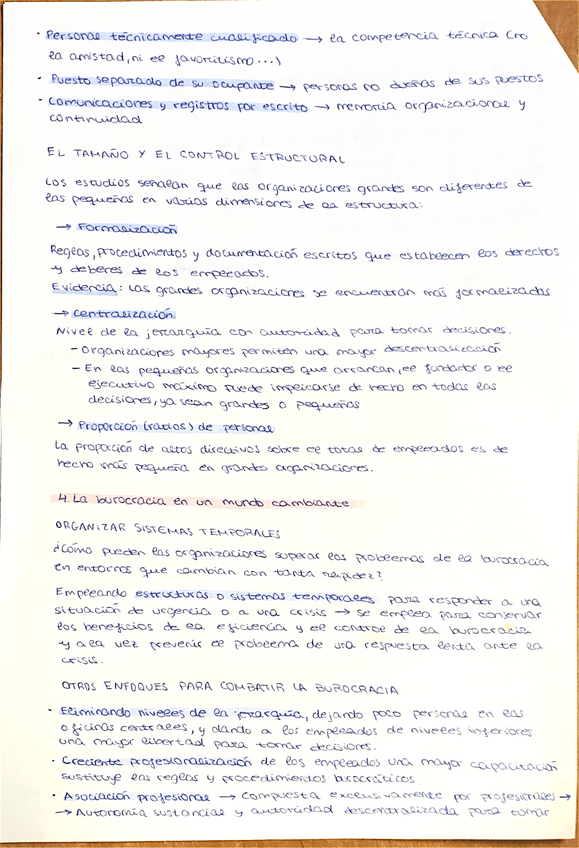 · Personal técnicamente cualificado → la competencia técnica (no
la amistad, ni el favoritismo...)
· Puesto separado de su ocupante → personas no dueñas de sus puestos
· Comunicaciones y registros por escrito → memoria organizacional y
continuidad
EL TAMAÑO Y EL CONTROL ESTRUCTURAL
Los estudios señalan que las organizaciones grandes son diferentes de
las pequeñas en varias dimensiones de la estructura:
→ Formalización
Reglas, procedimientos y documentación escritos que establecen los derechos
y deberes de los empleados.
Evidencia: Las grandes organizaciones se encuentran más formalizadas
→ Centralización
Nivel de la jerarquía con autoridad para tomar decisiones.
- Organizaciones mayores permiten una mayor descentralización
- En las pequeñas organizaciones que arrancan, el fundador o el
ejecutivo máximo puede implicarse de hecho en todas las
decisiones, ya sean grandes o pequeñas
→ Proporción (ratios) de personal
La proporción de altos directivos sobre el total de empleados es de
hecho más pequeña en grandes organizaciones.
4. La burocracia en un mundo cambiante
ORGANIZAR SISTEMAS TEMPORALES
¿Cómo pueden las organizaciones superar los problemas de la burocracia
en entornos que cambian con tanta rapidez?
Empleando estructuras o sistemas temporales para responder a una
situación de urgencia o a una crisis → se emplea para conservar
los beneficios de la eficiencia y el control de la burocracia
y a la vez prevenir el problema de una respuesta lenta ante la
crisis.
OTROS ENFOQUES PARA COMBATIR LA BUROCRACIA
· Eliminando niveles de la jerarquía, dejando poco personal en las
oficinas centrales, y dando a los empleados de niveles inferiores
una mayor libertad para tomar decisiones.
· Creciente profesionalización de los empleados una mayor capacitación
sustituye las reglas y procedimientos burocráticos
· Asociación profesional → compuesta exclusivamente por profesionales →
→ Autonomía sustancial y autoridad descentralizada para tomar